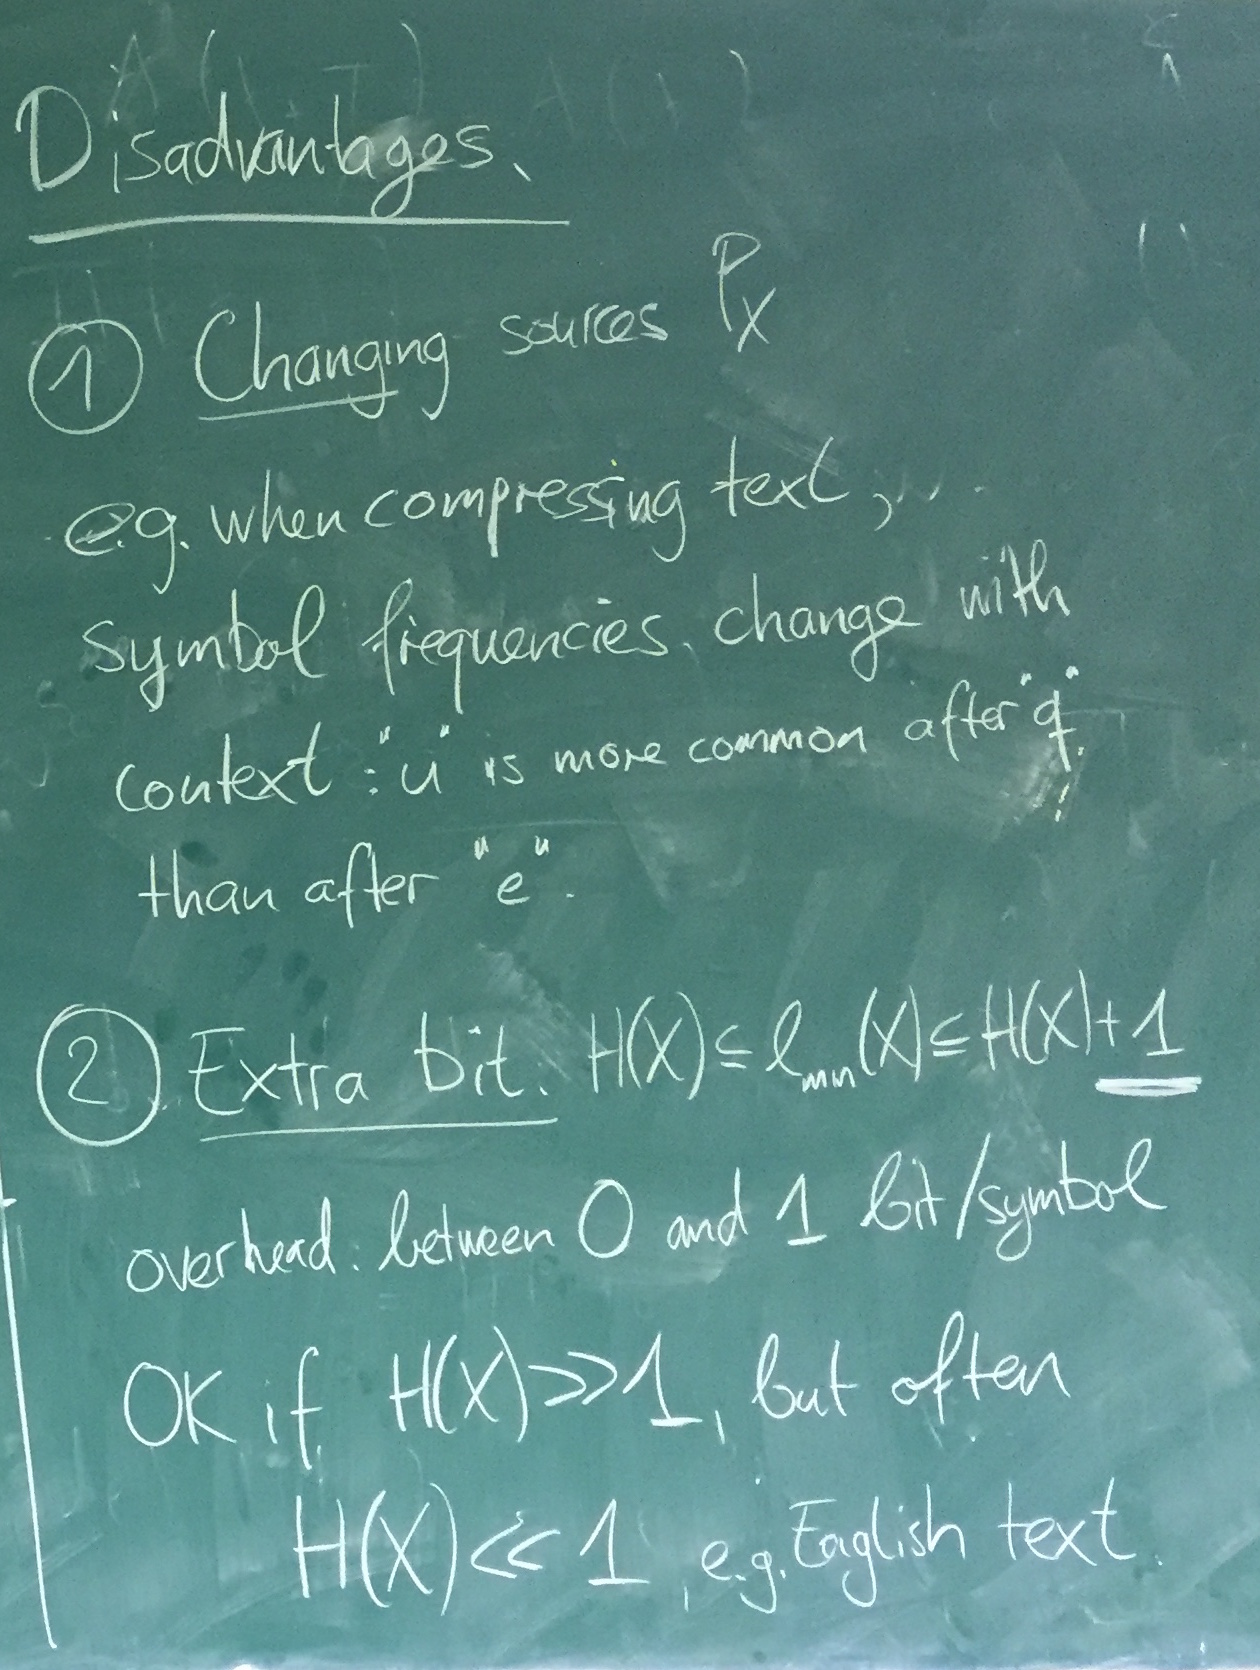 Disadvantages.
① Changing sources P_X
e.g. when compressing text,
symbol frequencies change with
context: "u" is more common after "q"
than after "e".
② Extra bit. H(X) ≤ ℓ_min(X) ≤ H(X)+1
overhead: between 0 and 1 bit/symbol
OK if H(X)≫1, but often
H(X) ≪ 1, e.g. English text.